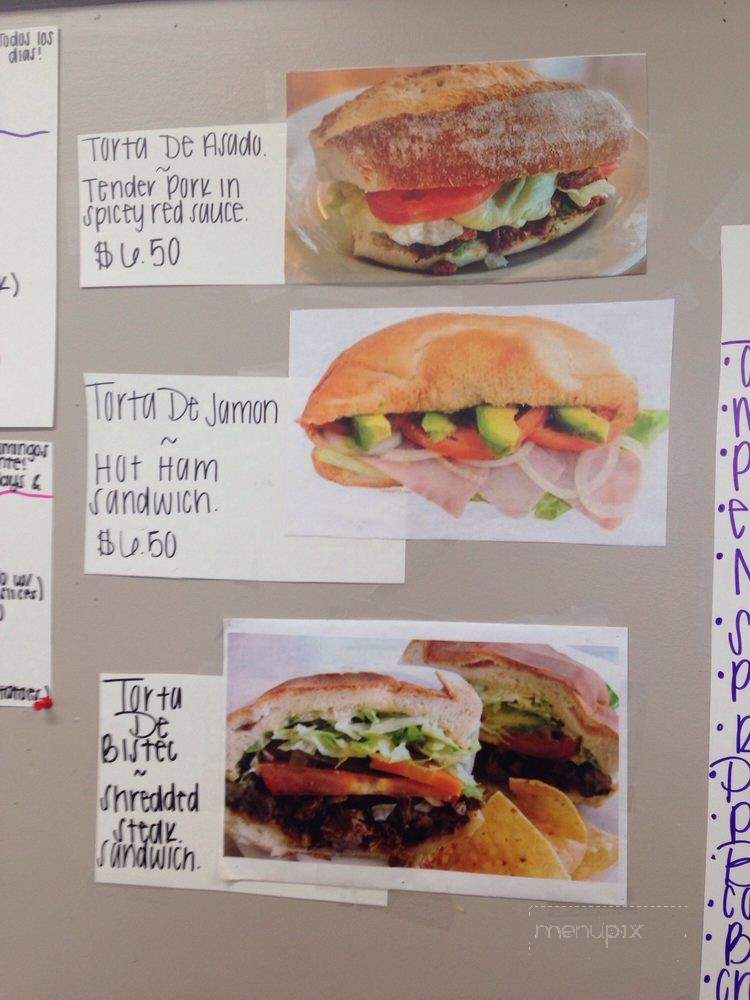 Todos los
dias!
Torta De Asado.
~
Tender Pork in
spicey red sauce.
$6.50
Torta De Jamon
~
Hot Ham
sandwich.
$6.50
Torta
De
Bistec
~
shredded
steak
sandwich.
menupix